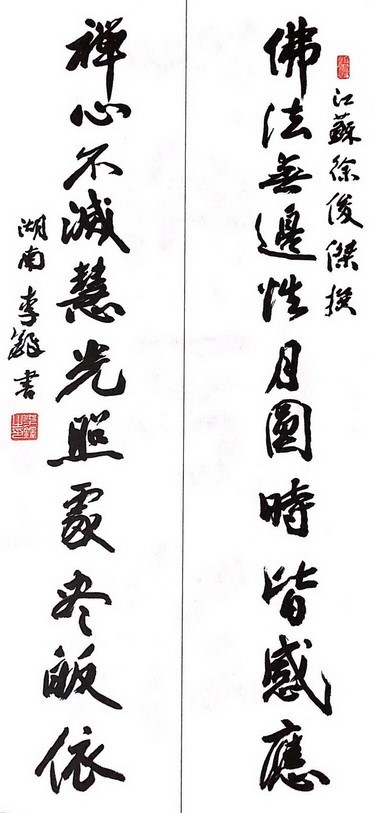 江蘇徐俊傑撰
佛法無邊性月圓時皆感應
禪心不滅慧光照處尽皈依
湖南李敏書